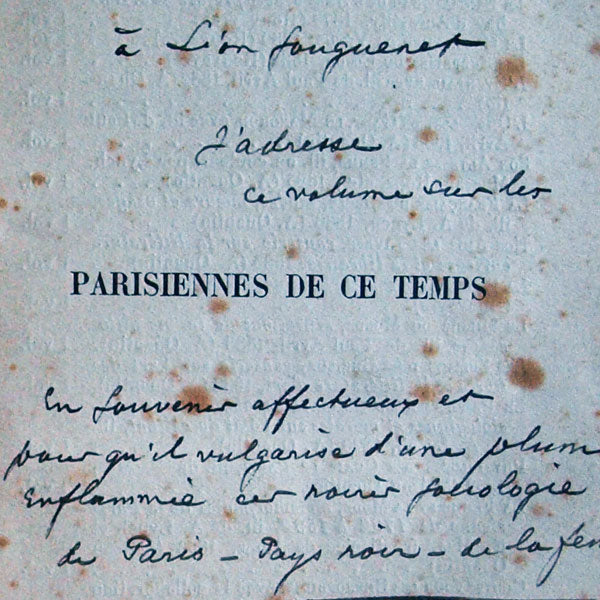 à Léon Souguenet
J'adresse
ce volume sur les
PARISIENNES DE CE TEMPS
En souvenir affectueux et
pour qu'il vulgarise d'une plum
Enflammée
de Paris - Pays noir - de la fem